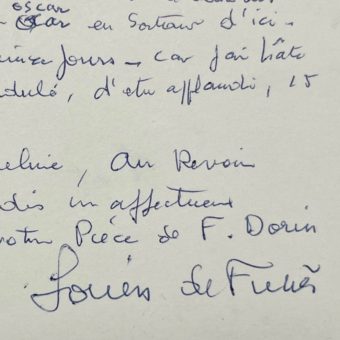 oscar
Oscar en sortant d'ici -
jours - car j'ai hâte
d'être applaudi, 15
, Au Revoir
dis un affectueux
Pièce de F. Dorin
Louis de Funès